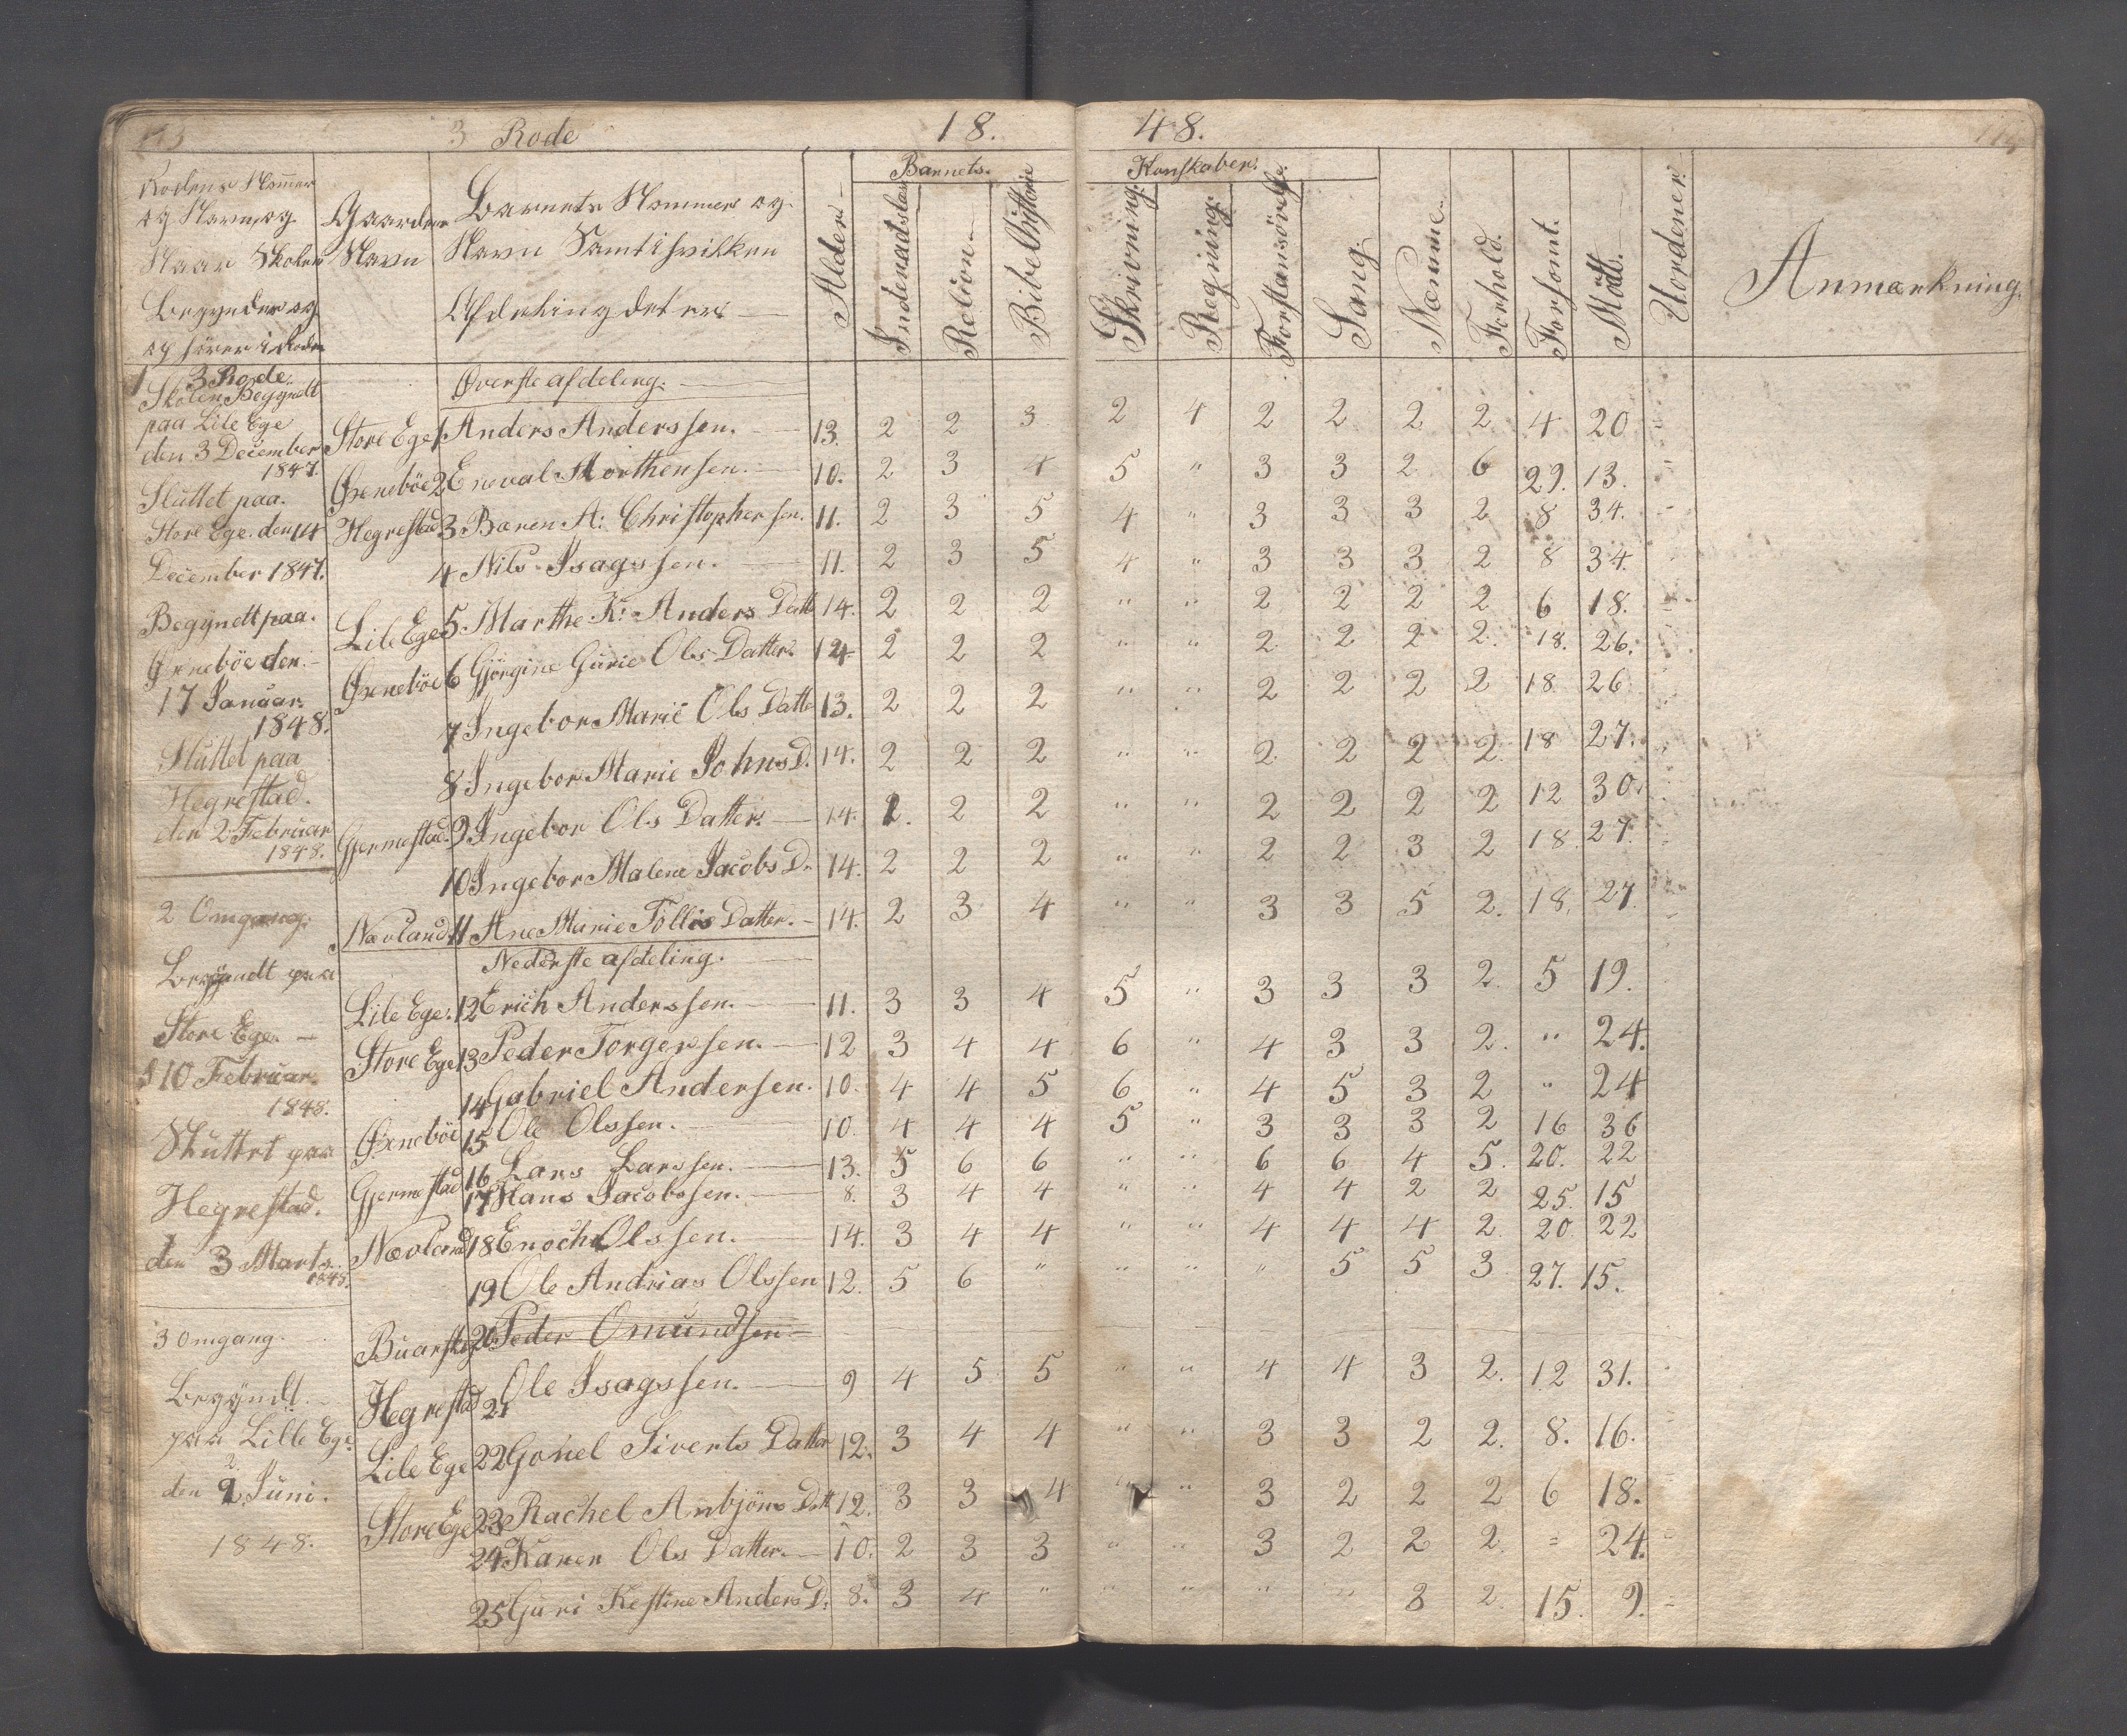 3 Rode 18. 48.
Rodens Nommer og Navn, og Naar Skolen Begynder og ophører i Roden
Gaardens Navn
Barnets Nommer og Navn Samt i hvilken Afdehing det er
Alder
Barnets. Kunskaber.
Indenadslæs Relion Bibelhistorie Skrivning. Regning. Forstansövelse. Sang. Næmme. Forhold. Forsömt. Mödt. Uordener. Anmærkning.
3 Rode.
Skolen Begyndt
paa Lile Ege
den 3 December
1847.
Sluttet paa.
Store Ege. den 14
December 1847.
Begyndt paa.
Øxeneböe den.
17 Januar.
1848.
Sluttet paa
Hegrestad.
den 2 Februar
1848.
2 Omgang.
Begyndt paa
Store Ege.
10 Februar.
1848.
Sluttet paa
Hegrestad.
den 3 Marts.
1848.
3 Omgang.
Begyndt
paa Lille Ege.
den 2. Juni.
1848.
Øverste afdeling.
Store Ege 1 Anders Anderssen. 13. 2 2 3 2 4 2 2 2 2 4 20
Øxeneböe 2 Eneval Morthensen. 10. 2 3 4 5 " 3 3 2 6 29. 13.
Hegrestad 3 Baren A: Christophersen. 11. 2 3 5 4 " 3 3 3 2 8 34.
4 Nils Isagssen. 11. 2 3 5 4 " 3 3 3 2 8 34.
Lile Ege 5 Marthe K: Anders Datt 14. 2 2 2 " " 2 2 2 2 6 18.
Øxeneböe 6 Gjørgine Gurie Ols Datter. 14 2 2 2 " " 2 2 2 2. 18. 26.
7 Ingebor Marie Ols Datte 13. 2 2 2 " " 2 2 2 2 18 26
8 Ingebor Marie Johns D. 14. 2 2 2 " " 2 2 2 2. 18 27.
Gjermestad. 9 Ingebor Ols Datter. 14. 2. 2 2 " " 2 2 2 2 12 30
10 Ingebor Malene Jacobs D. 14. 2 2 2 " " 2 2 3 2 18. 27.
Nævland. 11 Ane Marie Tollis Datter. 14. 2 3 4 " " 3 3 5 2. 18. 27.
Nederste afdeling.
Lile Ege. 12 Erich Anderssen. 11. 3 3 4 5 " 3 3 3 2. 5 19.
Store Ege 13 Peder Torgersen. 12 3 4 4 6 " 4 3 3 2. " 24.
14 Gabriel Andersen. 10. 4 4 5 6 " 4 5 3 2 " 24
Øxeneböe 15 Ole Olssen. 10. 4 4 4 5 " 3 3 3 2 16 36
Gjermestad 16 Lars Larssen. 13. 5 6 6 " " 6 6 4 5. 20. 22
17 Hans Jacobssen. 8. 3 4 4 " " 4 4 2 2 25. 15
Nævland 18 Enoch Olssen. 14. 3 4 4 " " 4 4 4 2. 20. 22
19 Ole Andrias Olssen 12. 5 6 " " " " 5 5 3 27. 15.
20 Peder Omundsen
Hegrestad 21 Ole Isagssen. 9 4 5 5 " " 4 4 3 2. 12 31.
Lile Ege 22 Gonel Siverts Datter 12. 3 4 4 " " 3 3 2 2. 8. 16.
Store Ege 23 Rachel Anbjöns Datt 12. 3 3 4 " " 3 2 2 2 6 18.
24 Karen Ols Datter. 10. 2 3 3 " " 3 2 2 2. = 24.
25 Guri Kestine Anders D. 8. 3 4 " " " " " 3 2. 15. 9.